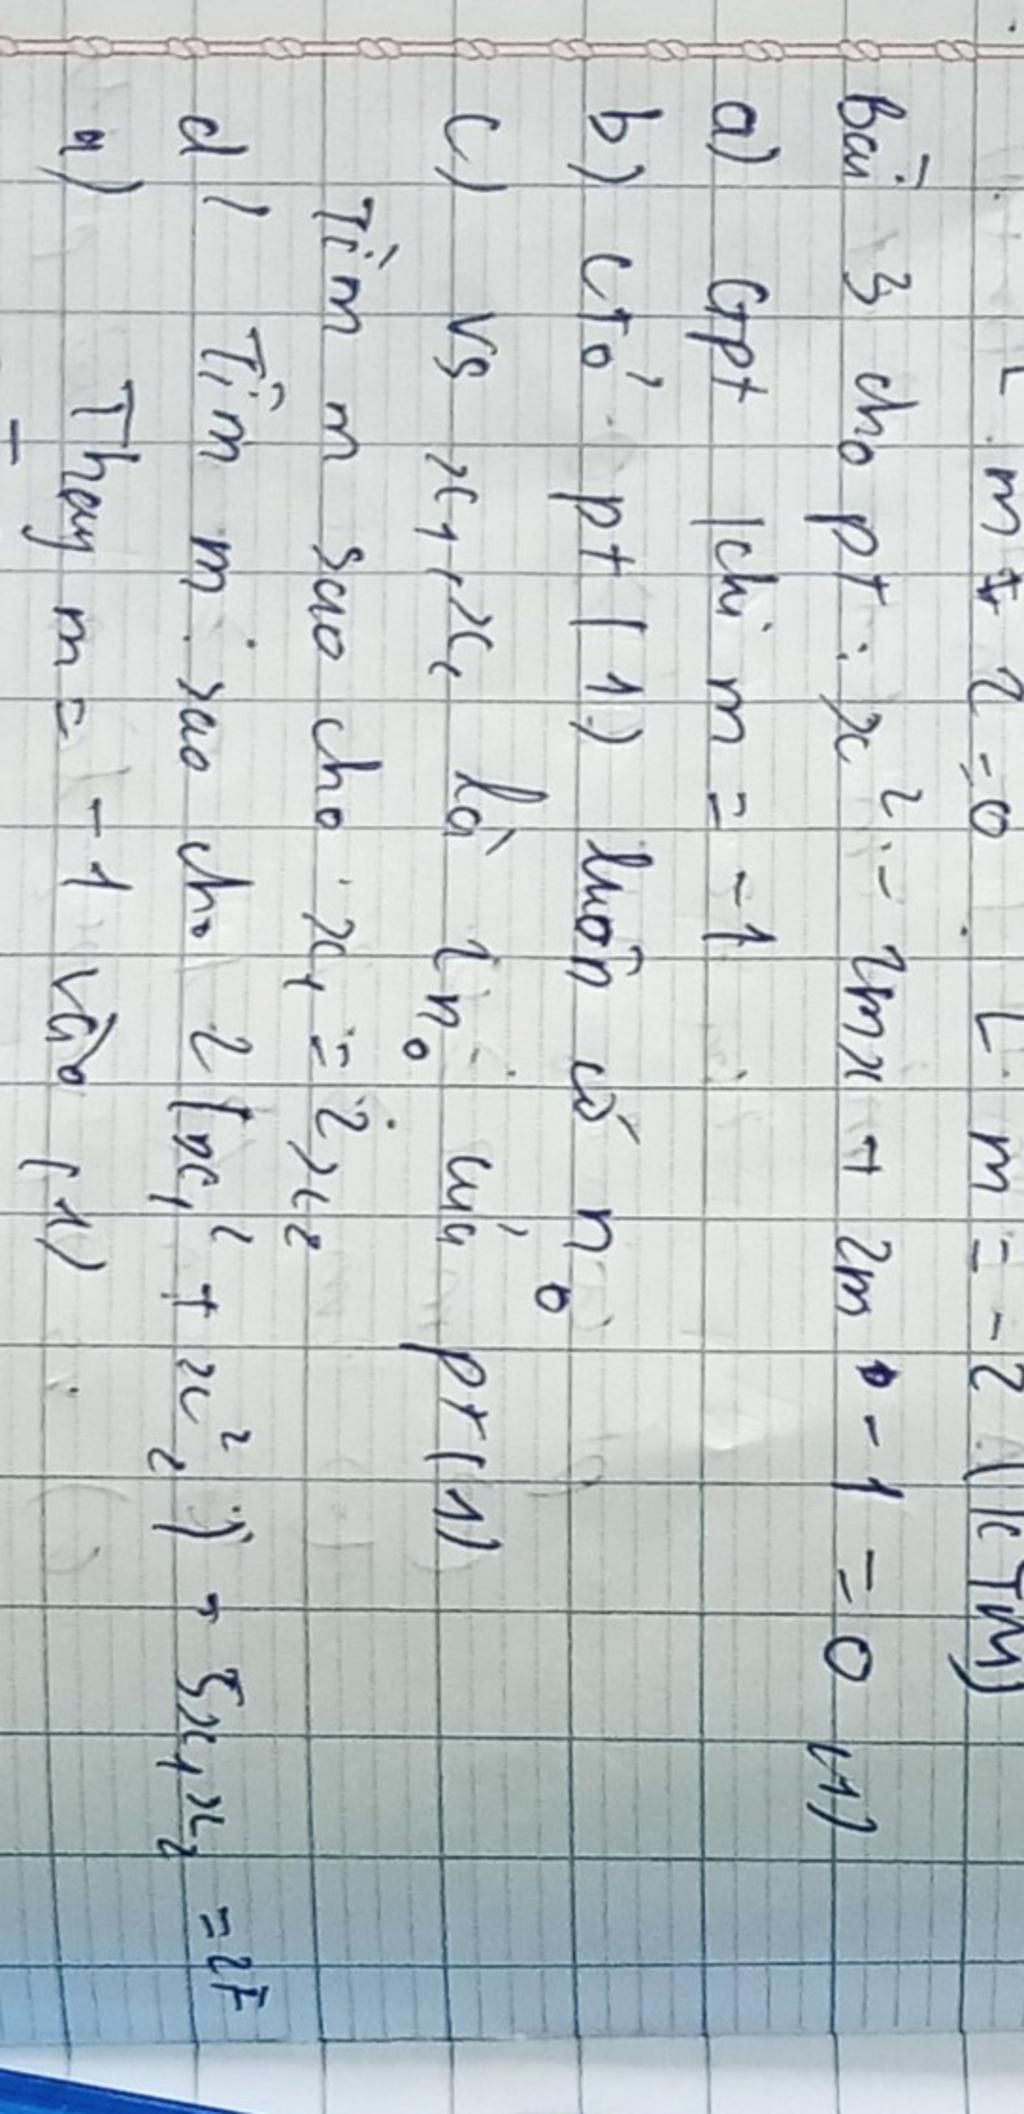 m + 2 = 0 m = -2 (KTM)
Bài 3 cho pt : x² - 2mx + 2m - 1 = 0 (1)
a) Gpt khi m = -1
b) Ctỏ pt (1) luôn có n₀
c) Vs x₁, x₂ là 2n₀ của pt (1)
Tìm m sao cho x₁ = 2x₂
d) Tìm m sao cho 2(x₁² + x₂²) - 5x₁x₂ = 27
a) Thay m = -1 vào (1)